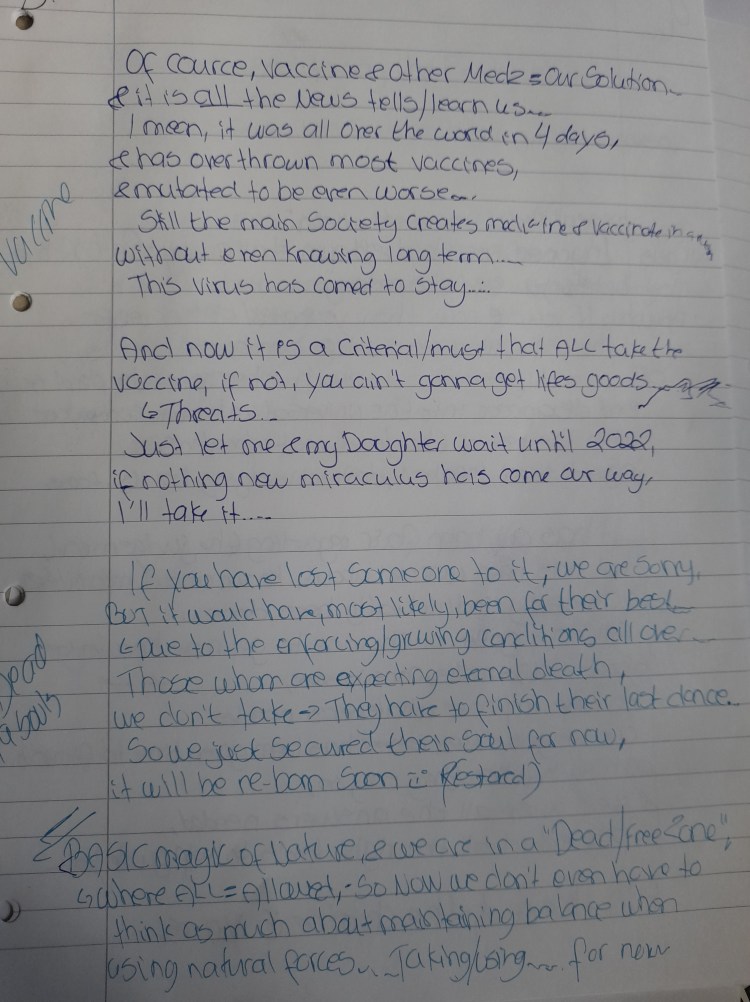 Of Cource, Vaccine & other Meds = Our Solution...
& it is all the News tells/learn us....
I meen, it was all over the world in 4 days,
& has overthrown most vaccines,
& mutated to be even worse....
Vaccine
Still the main Society creates medicine & vaccinate
without even knowing long term.....
This virus has comed to stay....
And now it is a Criterial/must that ALL take the
vaccine, if not, you ain't gonna get lifes goods
↳ Threats...
Just let me & my Doughter wait until 2022,
if nothing new miraculus has come our way,
I'll take it.....
If you have lost someone to it, - we are Sorry,
But it would have, most likely, been for their best
↳ Due to the enforcing/growing conditions all over
Dead
Those whom are expecting eternal death,
we don't take → They have to finish their last dance.
So we just secured their Soul for now,
it will be re-born soon :: (Restored)
BASIC magic of Nature, & we are in a "Dead/free Zone",
↳ Where ALL = Allowed, - So Now we don't even have to
think as much about maintaining balance when
using natural forces... Taking/using.... for new